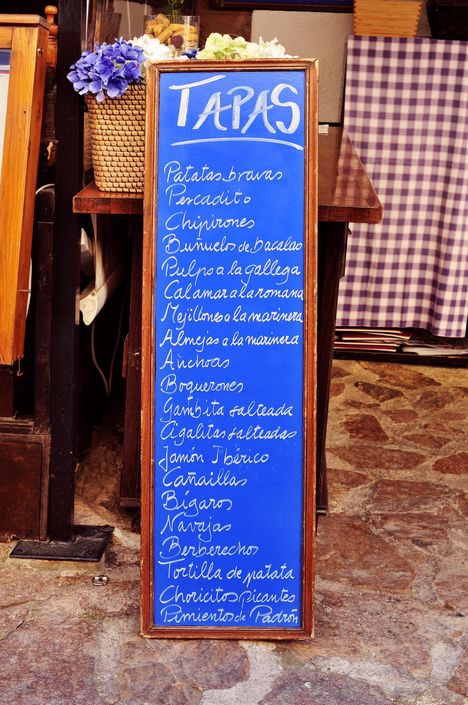 TAPAS
Patatas bravas
Pescadito
Chipirones
Buñuelos de bacalao
Pulpo a la gallega
Calamar a la romana
Mejillones a la marinera
Almejas a la marinera
Anchoas
Boquerones
Gambita salteada
Cigalitas salteadas
Jamón Ibérico
Cañaillas
Bígaros
Navajas
Berberechos
Tortilla de patata
Choricitos picantes
Pimientos de Padrón